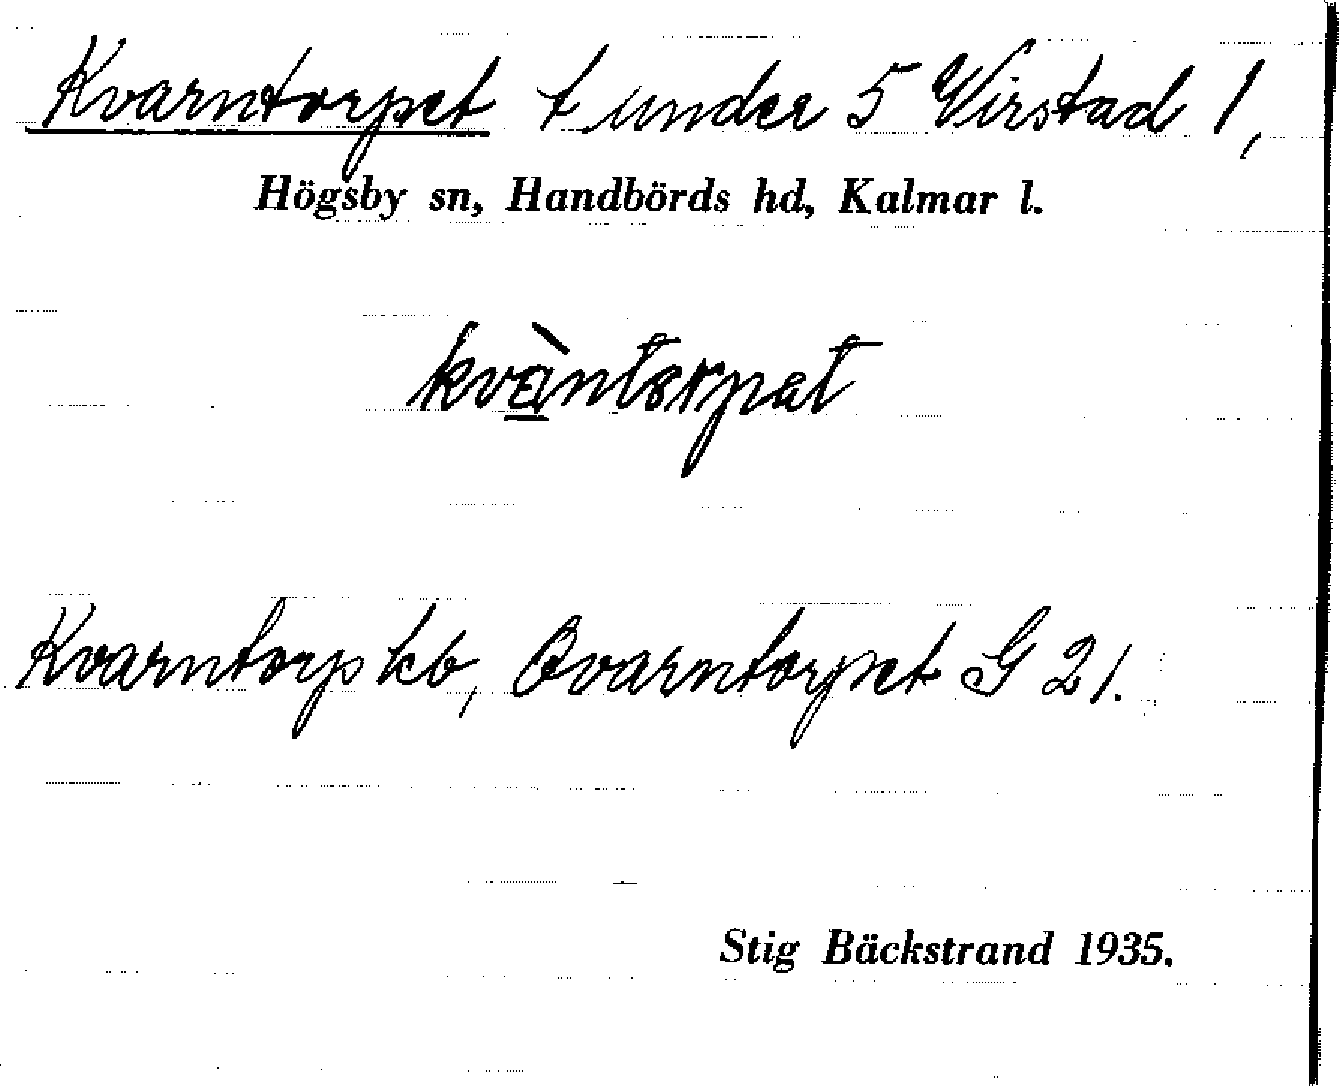 Kvarntorpet t under 5 Virstad 1,
Högsby sn, Handbörds hd, Kalmar l.
kvàntorpat
Kvarntorp kb, Qvarntorpet G 21.
Stig Bäckstrand 1935.